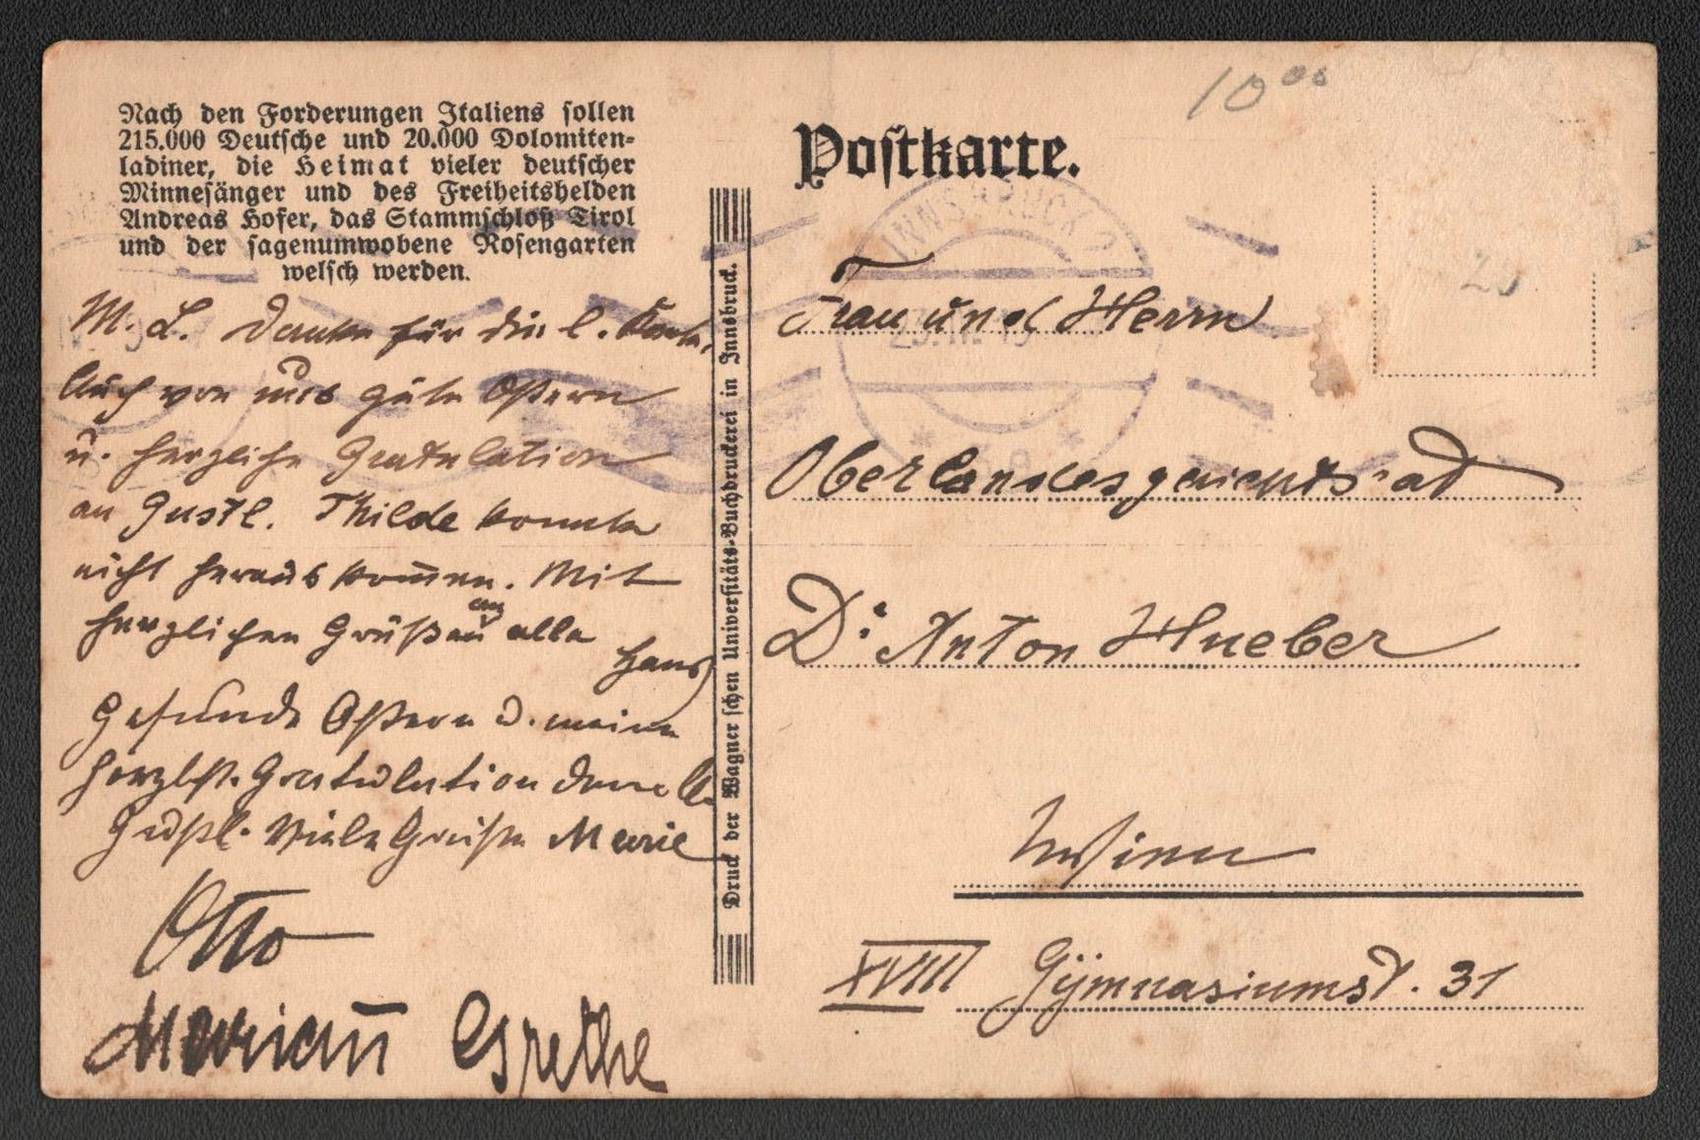 Nach den Forderungen Italiens sollen
215.000 Deutsche und 20.000 Dolomiten-
ladiner, die Heimat vieler deutscher
Minnesänger und des Freiheitshelden
Andreas Hofer, das Stammschloß Tirol
und der sagenumwobene Rosengarten
welsch werden.
M. L. Danke für die l. Karte.
Auch von uns gute Ostern
u. herzliche Gratulation
an Gustl. Thilde konnte
nicht herauskom̅en. Mit
herzlichen Grüßen an alle
Hans
Gesunde Ostern u. meine
herzlst. Gratulation
Gustl. Viele Grüße Marie
Otto
Mariañ Grethe
Druck der Wagner'schen Universitäts-Buchdruckerei in Innsbruck.
10 00
Postkarte.
INNSBRUCK 2
25
Frau und Herrn
Oberlandesgerichtsrat
Dr. Anton Hueber
Wien
XVIII Gymnasiumst. 31